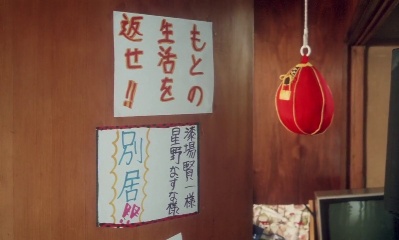 もとの
生活を
返せ!!
漆場賢一様
星野なずな様
別居